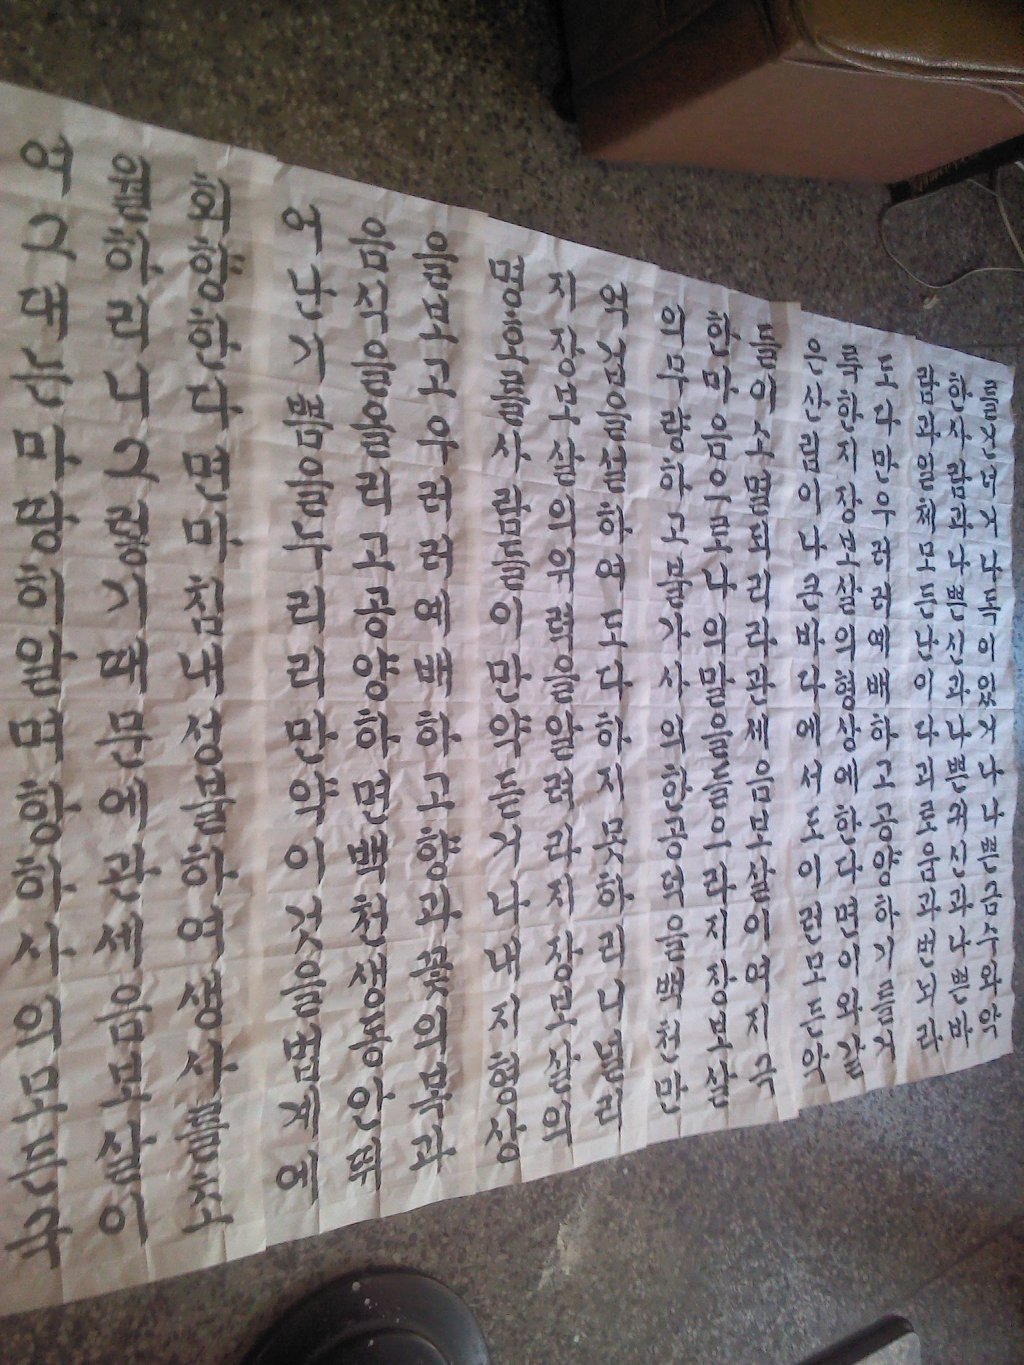 들건더거나독의있거나나쁜금수와악
한사람과나쁜신과나쁜귀신과나쁜바
람과일체모든난이다괴로움과번뇌라
도다만우러러예배하고공양하기를거
룩한지장보살의형상에한다면이와같
은산림이나큰바다에서도이런모든악
들의소멸되리라관세음보살이여지극
한마음으로나의말을들으라지장보살
의무량하고불가사의한공덕을백천만
여겁을설하여도다하지못하리니널리
지장보살의위력을알려라지장보살의
사람들이만약듣거나내지형상
을보고우러러예배하고향과꽃의복과
음식을올리고공양하면백천생동안뛰
누리리만약이것을법계에
회향한다면마침내성불하여생사를초
관세음보살이
여그대